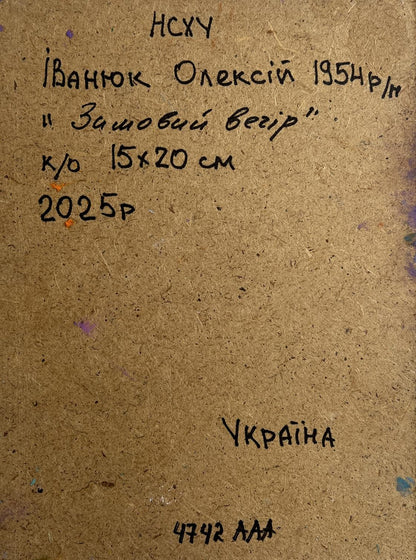 НСХУ
Іванюк Олексій 1954р/н
"Зимовий вечір"
к/о 15х20 см
2025р
УКРАЇНА
4742 ААА